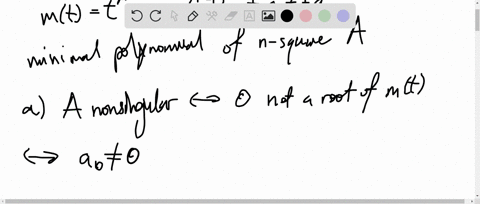 m(t) = t
minimal polynomial of n-square A
a) A nonsingular ↔ 0 not a root of m(t)
↔ a₀ ≠ 0